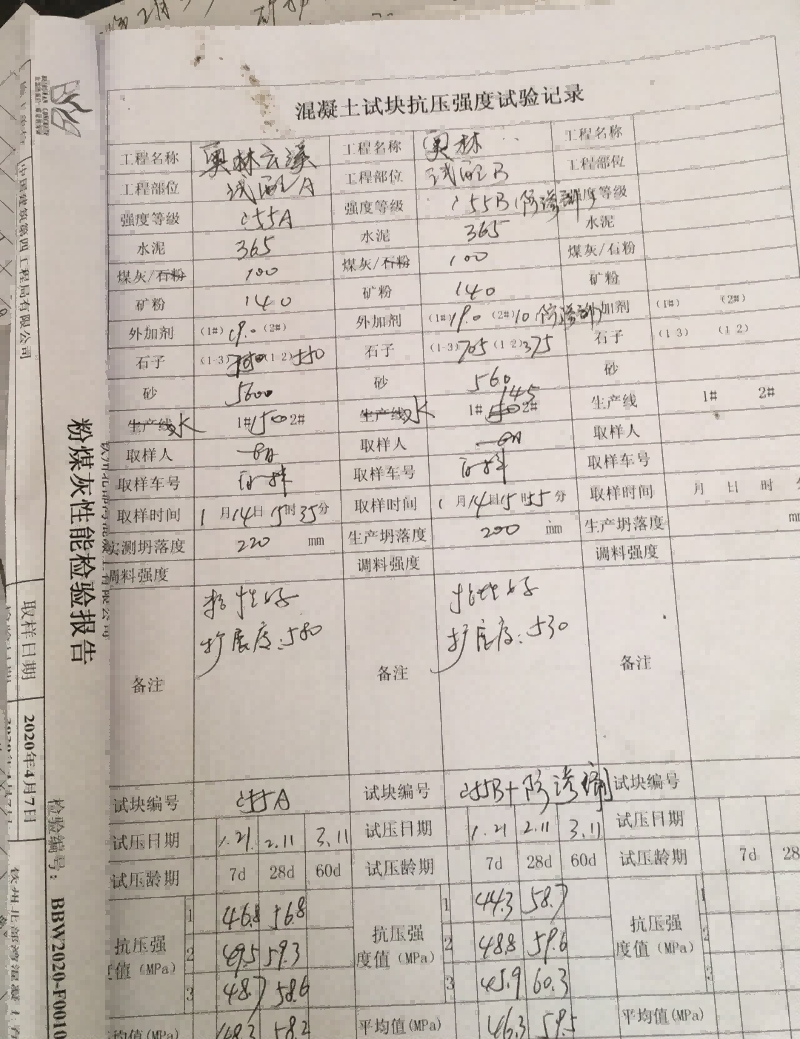 混凝土试块抗压强度试验记录
工程名称 奥林 工程名称 奥林 工程名称
工程部位 试配A 工程部位 试配B 工程部位
强度等级 C55A 强度等级 C55B(防渗 强度等级
水泥 365 水泥 365 水泥
煤灰/石粉 100 煤灰/石粉 100 煤灰/石粉
矿粉 140 矿粉 140 矿粉
外加剂 (1#) 19.0 (2#) 外加剂 (1#) 19.0 (2#) 10 外加剂 (1#) (2#)
石子 (1-3) (1-2) 石子 (1-3) 705 (1-2) 375 石子 (1-3) (1-2)
砂 砂 560 砂
生产线 水 1# 150 2# 生产线 水 1# 145 2# 生产线 1# 2#
取样人 取样人 取样人
取样车号 取样车号 取样车号
取样时间 1月14日15时35分 取样时间 1月14日15时55分 取样时间 月 日 时
实测坍落度 220 mm 生产坍落度 200 mm 生产坍落度 mm
调料强度 调料强度 调料强度
备注 和性好 备注 和性好 备注
扩展度:580 扩展度:530
试块编号 C55A 试块编号 C55B+防渗 试块编号
试压日期 1.21 2.11 3.11 试压日期 1.21 2.11 3.11 试压日期
试压龄期 7d 28d 60d 试压龄期 7d 28d 60d 试压龄期 7d 28
抗压强度值(MPa) 1 46.8 56.8 抗压强度值(MPa) 1 44.3 58.7 抗压强度值(MPa) 1
2 49.5 59.3 2 48.8 59.6 2
3 48.7 58.6 3 45.9 60.3 3
平均值(MPa) 48.3 58.2 平均值(MPa) 46.3 59.5 平均值(MPa)
粉煤灰性能检验报告
中国建筑第四工程局有限公司
取样日期 2020年4月7日
检验编号: BBW2020-F0010